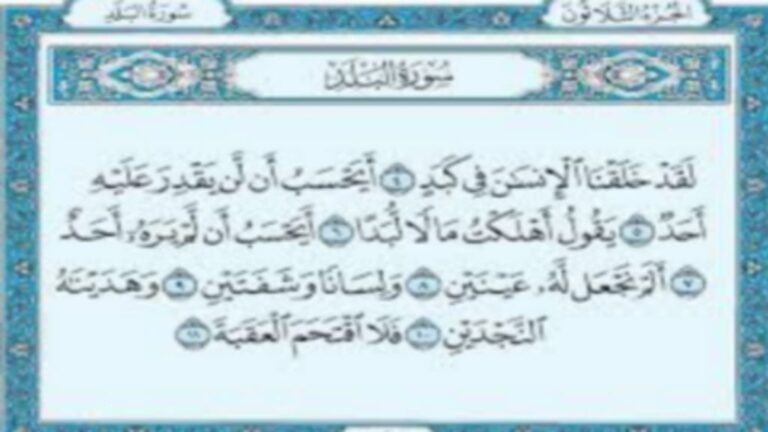 الجزء الثلاثون
سورة البلد
سورة البلد
لَقَدْ خَلَقْنَا ٱلْإِنسَٰنَ فِى كَبَدٍ ٤ أَيَحْسَبُ أَن لَّن يَقْدِرَ عَلَيْهِ
أَحَدٌ ٥ يَقُولُ أَهْلَكْتُ مَالًا لُّبَدًا ٦ أَيَحْسَبُ أَن لَّمْ يَرَهُۥ أَحَدٌ
٧ أَلَمْ نَجْعَل لَّهُۥ عَيْنَيْنِ ٨ وَلِسَانًا وَشَفَتَيْنِ ٩ وَهَدَيْنَٰهُ
ٱلنَّجْدَيْنِ ١٠ فَلَا ٱقْتَحَمَ ٱلْعَقَبَةَ ١١